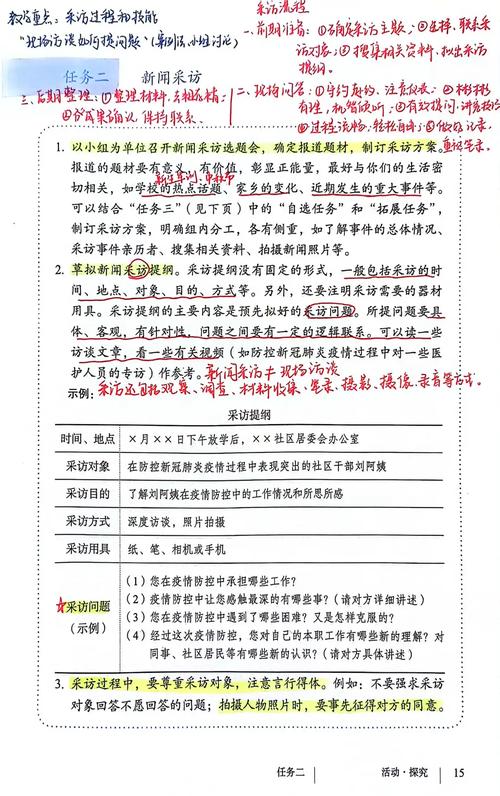 教学重点：采访过程和技能
"现场访谈如何提问题"（案例法、小组讨论）
采访流程
一、前期准备：①确定采访主题；②选择、联系采
访对象；③搜集相关资料、拟出采访
提纲。
二、现场问答：①守约赴约、注意仪表；②彬彬
有理、机智倾听；③有效提问、讲究技巧
④过程流畅、轻松自如；⑤做好记录、
三、后期整理：①整理材料，去粗存精；
任务二 新闻采访
1. 以小组为单位召开新闻采访选题会，确定报道题材，制订采访方案。
报道的题材要有意义、有价值，彰显正能量，最好与你们的生活密
切相关，如学校的热点话题、家乡的变化、近期发生的重大事件等。
可以结合“任务三”（见下页）中的“自选任务”和“拓展任务”，
制订采访方案，明确组内分工，各有侧重，如了解事件的总体情况、
采访事件亲历者、搜集相关资料、拍摄新闻照片等。
2. 草拟新闻采访提纲。采访提纲没有固定的形式，一般包括采访的时
间、地点、对象、目的、方式等。另外，还要注明采访需要的器材
用具。采访提纲的主要内容是预先拟好的采访问题。所提问题要具
体、客观，有针对性，问题之间要有一定的逻辑联系。可以读一些
访谈文章，看一些有关视频（如防控新冠肺炎疫情过程中对一些医
护人员的专访）作参考。
新闻采访≠现场访谈
示例：
采访还包括观察、调查、材料收集、笔录、摄影、摄像、录音等方式。
采访提纲
时间、地点 ×月××日下午放学后，××社区居委会办公室
采访对象 在防控新冠肺炎疫情过程中表现突出的社区干部刘阿姨
采访目的 了解刘阿姨在疫情防控中的工作情况和所思所感
采访方式 深度访谈，照片拍摄
采访用具 纸、笔、相机或手机
采访问题
（示例）
（1）您在疫情防控中承担哪些工作？
（2）疫情防控中让您感触最深的有哪些事？（请对方详细讲述）
（3）您在疫情防控中遇到了哪些困难？又是怎样克服的？
（4）经过这次疫情防控，您对自己的本职工作有哪些新的理解？对
同事、社区居民等有哪些新的认识？（请对方具体讲述）
3. 采访过程中，要尊重采访对象，注意言行得体。例如：不要强求采访
对象回答不愿回答的问题；拍摄人物照片时，要事先征得对方的同意。
任务二 活动·探究 15